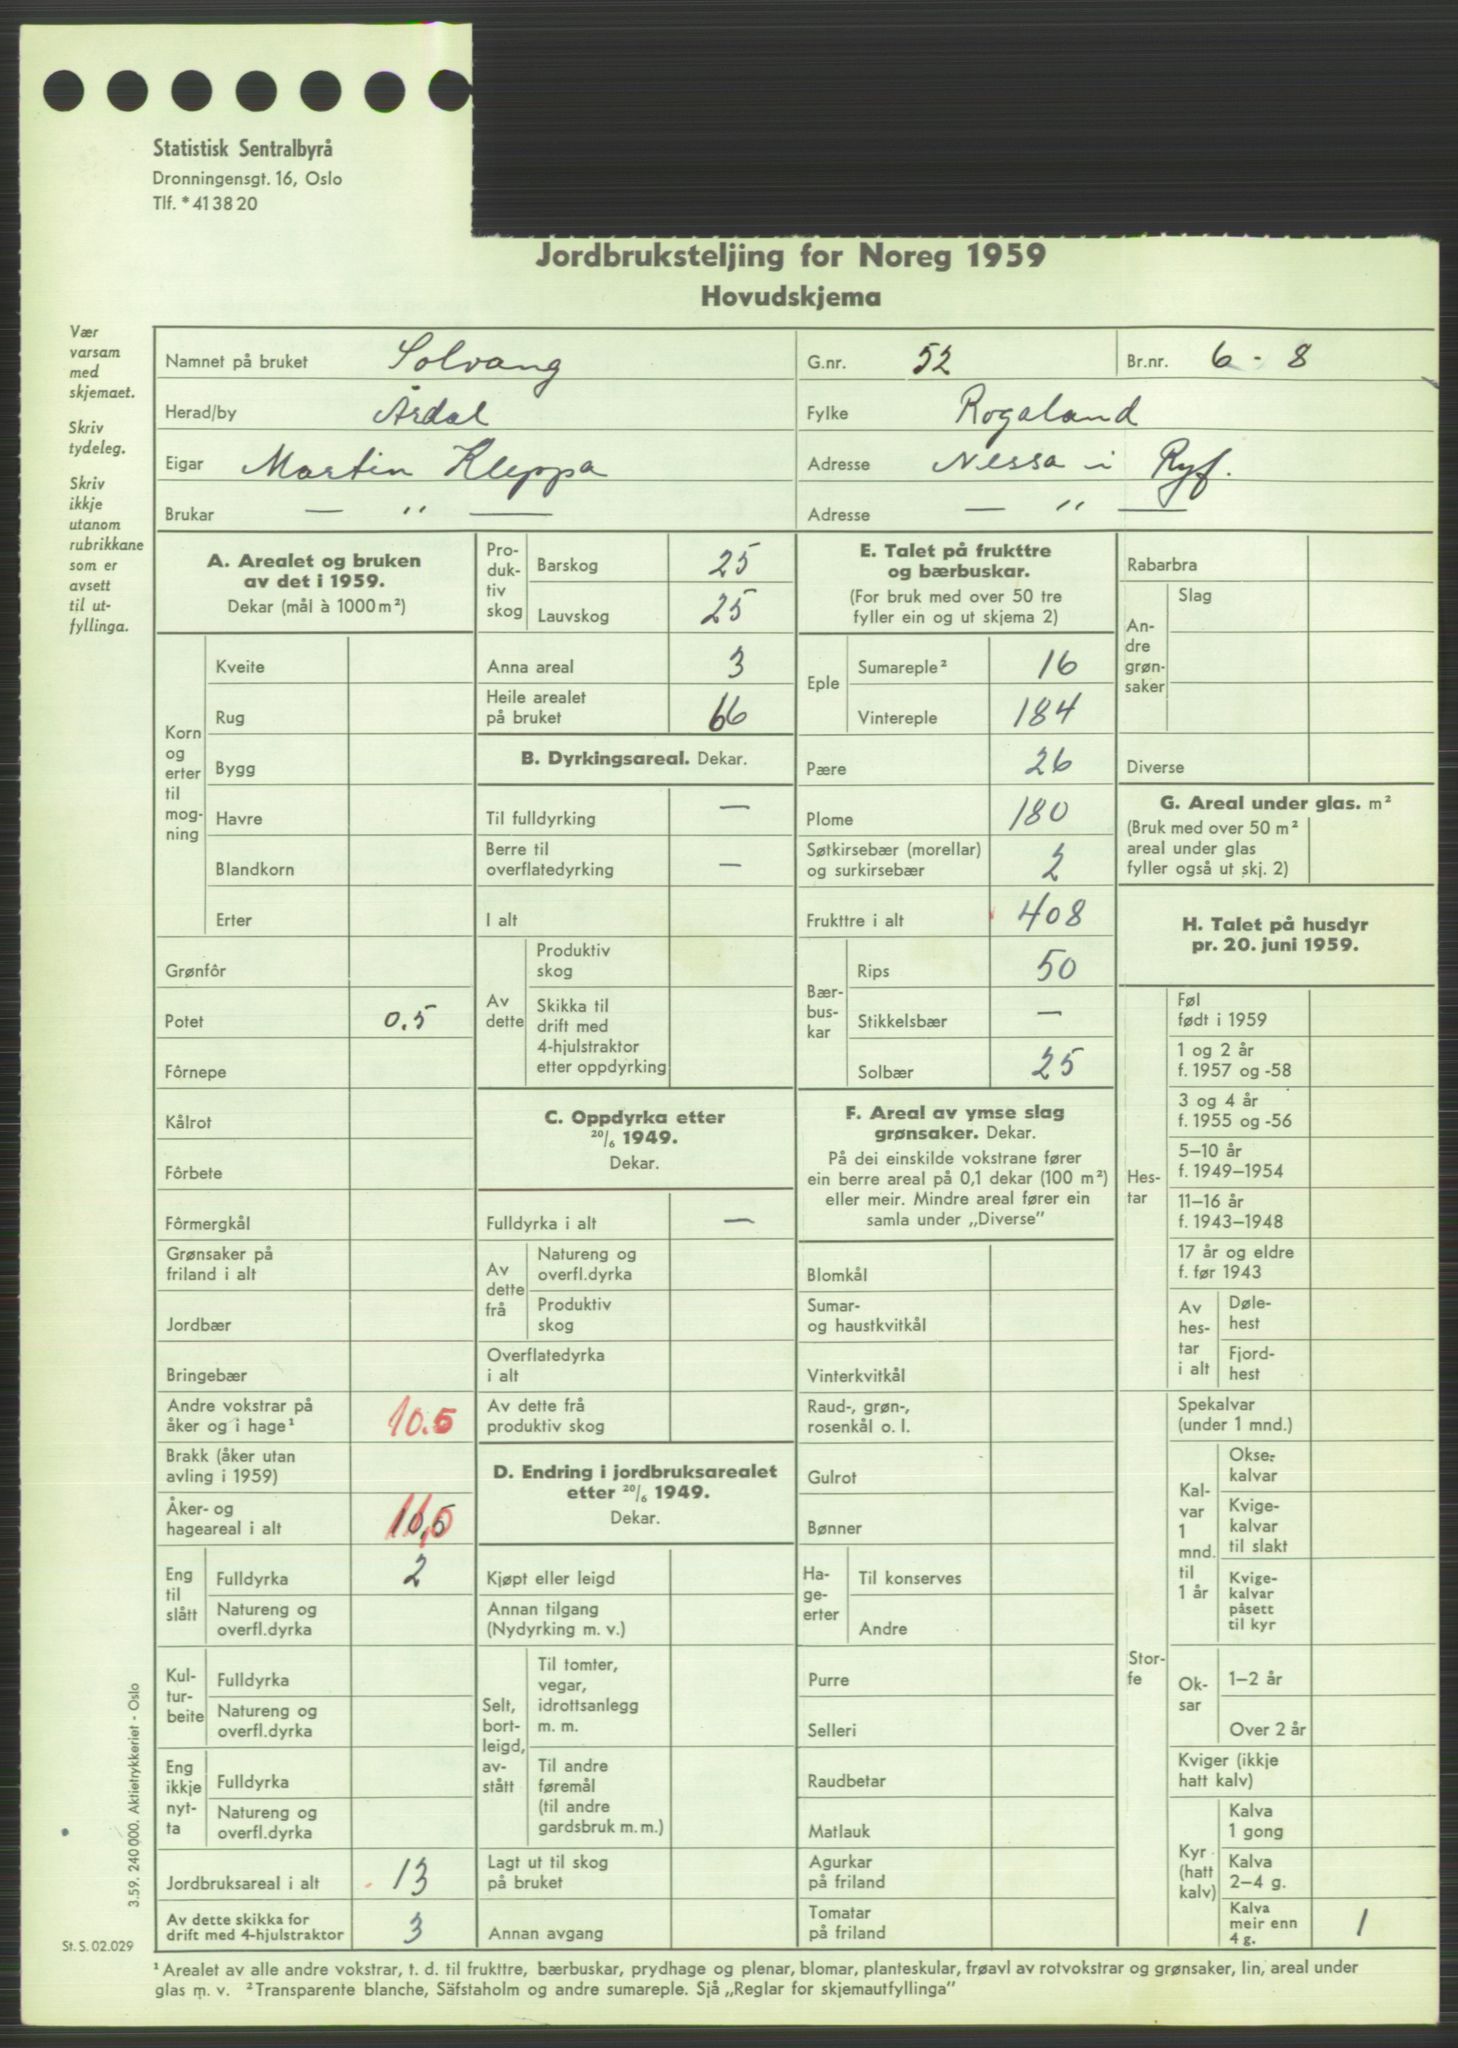 Statistisk Sentralbyrå
Dronningensgt. 16, Oslo
Tlf. * 41 38 20
Jordbruksteljing for Noreg 1959
Hovudskjema
Vær
varsam
med
skjemaet.
Skriv
tydeleg.
Skriv
ikkje
utanom
rubrikkane
som er
avsett
til ut-
fyllinga.
Namnet på bruket Solvang G.nr. 52 Br.nr. 6 - 8
Herad/by Årdal Fylke Rogaland
Eigar Martin Kleppa Adresse Nessa i Ryf.
Brukar — " — Adresse — " —
A. Arealet og bruken
av det i 1959.
Dekar (mål à 1000 m²)
Korn
og
erter
til
mog-
ning
Kveite
Rug
Bygg
Havre
Blandkorn
Erter
Grønfôr
Potet 0.5
Fôrnepe
Kålrot
Fôrbete
Fôrmergkål
Grønsaker på
friland i alt
Jordbær
Bringebær
Andre vokstrar på
åker og i hage¹ 10.5
Brakk (åker utan
avling i 1959)
Åker- og
hageareal i alt 10,5 11,0
Eng
til
slått
Fulldyrka 2
Natureng og
overfl.dyrka
Kul-
tur-
beite
Fulldyrka
Natureng og
overfl.dyrka
Eng
ikkje
nyt-
ta
Fulldyrka
Natureng og
overfl.dyrka
Jordbruksareal i alt 13
Av dette skikka for
drift med 4-hjulstraktor 3
Pro-
duk-
tiv
skog
Barskog 25
Lauvskog 25
Anna areal 3
Heile arealet
på bruket 66
B. Dyrkingsareal. Dekar.
Til fulldyrking —
Berre til
overflatedyrking —
I alt
Av
dette
Produktiv
skog
Skikka til
drift med
4-hjulstraktor
etter oppdyrking
C. Oppdyrka etter
20/6 1949.
Dekar.
Fulldyrka i alt —
Av
dette
frå
Natureng og
overfl.dyrka
Produktiv
skog
Overflatedyrka
i alt
Av dette frå
produktiv skog
D. Endring i jordbruksarealet
etter 20/6 1949.
Dekar.
Kjøpt eller leigd
Annan tilgang
(Nydyrking m. v.)
Selt,
bort-
leigd,
av-
stått
Til tomter,
vegar,
idrottsanlegg
m. m.
Til andre
føremål
(til andre
gardsbruk m. m.)
Lagt ut til skog
på bruket
Annan avgang
E. Talet på frukttre
og bærbuskar.
(For bruk med over 50 tre
fyller ein og ut skjema 2)
Eple
Sumareple² 16
Vintereple 184
Pære 26
Plome 180
Søtkirsebær (morellar)
og surkirsebær 2
Frukttre i alt 408
Bær-
bus-
kar
Rips 50
Stikkelsbær —
Solbær 25
F. Areal av ymse slag
grønsaker. Dekar.
På dei einskilde vokstrane fører
ein berre areal på 0,1 dekar (100 m²)
eller meir. Mindre areal fører ein
samla under „Diverse"
Blomkål
Sumar-
og haustkvitkål
Vinterkvitkål
Raud-, grøn-,
rosenkål o. l.
Gulrot
Bønner
Ha-
ge-
erter
Til konserves
Andre
Purre
Selleri
Raudbetar
Matlauk
Agurkar
på friland
Tomatar
på friland
Rabarbra
An-
dre
grøn-
saker
Slag
Diverse
G. Areal under glas. m²
(Bruk med over 50 m²
areal under glas
fyller også ut skj. 2)
H. Talet på husdyr
pr. 20. juni 1959.
Hes-
tar
Føl
født i 1959
1 og 2 år
f. 1957 og -58
3 og 4 år
f. 1955 og -56
5–10 år
f. 1949–1954
11–16 år
f. 1943–1948
17 år og eldre
f. før 1943
Av
hes-
tar
i alt
Døle-
hest
Fjord-
hest
Stor-
fe
Spekalvar
(under 1 mnd.)
Kal-
var
1
mnd.
til
1 år
Okse-
kalvar
Kvige-
kalvar
til slakt
Kvige-
kalvar
påsett
til kyr
Ok-
sar
1–2 år
Over 2 år
Kviger (ikkje
hatt kalv)
Kyr
(hatt
kalv)
Kalva
1 gong
Kalva
2–4 g.
Kalva
meir enn
4 g. 1
3.59. 240 000. Aktietrykkeriet - Oslo
St. S. 02.029
¹ Arealet av alle andre vokstrar, t. d. til frukttre, bærbuskar, prydhage og plenar, blomar, planteskular, frøavl av rotvokstrar og grønsaker, lin, areal under
glas m. v. ² Transparente blanche, Säfstaholm og andre sumareple. Sjå „Reglar for skjemautfyllinga"